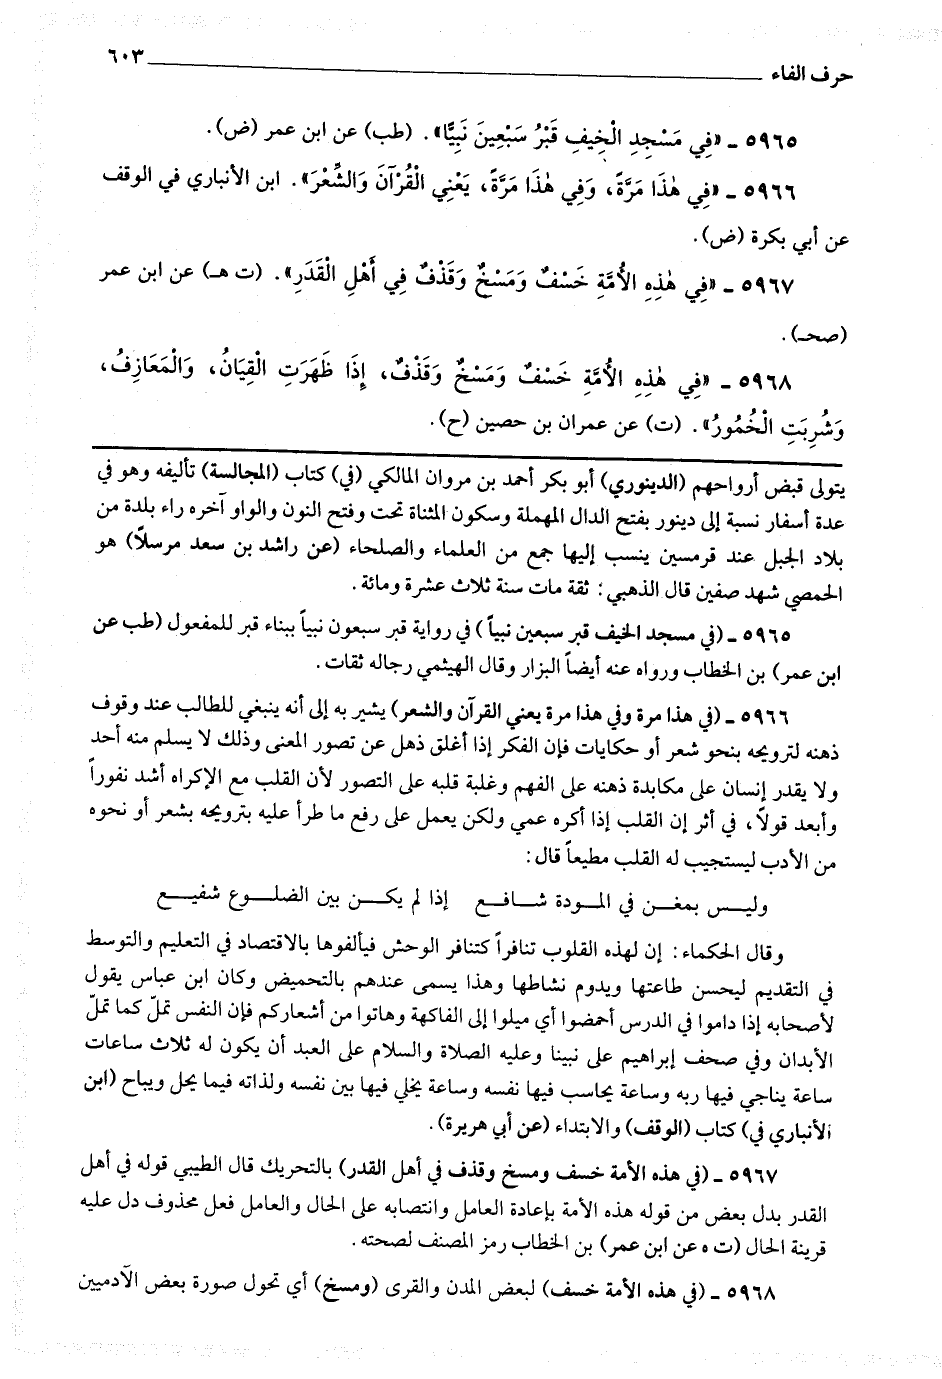 حرف الفاء ٦٠٣
٥٩٦٥ ـ «فِي مَسْجِدِ الْخِيفِ قَبْرُ سَبْعِينَ نَبِيًّا». (طب) عن ابن عمر (ض).
٥٩٦٦ ـ «فِي هٰذَا مَرَّةً، وَفِي هٰذَا مَرَّةً، يَعْنِي الْقُرْآنَ وَالشِّعْرَ». ابن الأنباري في الوقف
عن أبي بكرة (ض).
٥٩٦٧ ـ «فِي هٰذِهِ الأُمَّةِ خَسْفٌ وَمَسْخٌ وَقَذْفٌ فِي أَهْلِ الْقَدَرِ». (ت هـ) عن ابن عمر
(صحـ).
٥٩٦٨ ـ «فِي هٰذِهِ الأُمَّةِ خَسْفٌ وَمَسْخٌ وَقَذْفٌ، إِذَا ظَهَرَتِ الْقِيَانُ، وَالْمَعَازِفُ،
وَشُرِبَتِ الْخُمُورُ». (ت) عن عمران بن حصين (ح).
يتولى قبض أرواحهم (الدينوري) أبو بكر أحمد بن مروان المالكي (في) كتاب (المجالسة) تأليفه وهو في
عدة أسفار نسبة إلى دينور بفتح الدال المهملة وسكون المثناة تحت وفتح النون والواو آخره راء بلدة من
بلاد الجبل عند قرمسين ينسب إليها جمع من العلماء والصلحاء (عن راشد بن سعد مرسلاً) هو
الحمصي شهد صفين قال الذهبي: ثقة مات سنة ثلاث عشرة ومائة.
٥٩٦٥ ـ (في مسجد الخيف قبر سبعين نبياً) في رواية قبر سبعون نبياً ببناء قبر للمفعول (طب عن
ابن عمر) بن الخطاب ورواه عنه أيضاً البزار وقال الهيثمي رجاله ثقات.
٥٩٦٦ ـ (في هذا مرة وفي هذا مرة يعني القرآن والشعر) يشير به إلى أنه ينبغي للطالب عند وقوف
ذهنه لترويحه بنحو شعر أو حكايات فإن الفكر إذا أغلق ذهل عن تصور المعنى وذلك لا يسلم منه أحد
ولا يقدر إنسان على مكابدة ذهنه على الفهم وغلبة قلبه على التصور لأن القلب مع الإكراه أشد نفوراً
وأبعد قولاً، في أثر إن القلب إذا أكره عمي ولكن يعمل على رفع ما طرأ عليه بترويحه بشعر أو نحوه
من الأدب ليستجيب له القلب مطيعاً قال:
وليـس بمغـن في المـودة شـافـع إذا لم يكـن بين الضلـوع شفيـع
وقال الحكماء: إن لهذه القلوب تنافراً كتنافر الوحش فيألفوها بالاقتصاد في التعليم والتوسط
في التقديم ليحسن طاعتها ويدوم نشاطها وهذا يسمى عندهم بالتحميض وكان ابن عباس يقول
لأصحابه إذا داموا في الدرس أحمضوا أي ميلوا إلى الفاكهة وهاتوا من أشعاركم فإن النفس تملّ كما تملّ
الأبدان وفي صحف إبراهيم على نبينا وعليه الصلاة والسلام على العبد أن يكون له ثلاث ساعات
ساعة يناجي فيها ربه وساعة يحاسب فيها نفسه وساعة يخلي فيها بين نفسه ولذاته فيما يحل ويباح (ابن
الأنباري في) كتاب (الوقف) والابتداء (عن أبي هريرة).
٥٩٦٧ ـ (في هذه الأمة خسف ومسخ وقذف في أهل القدر) بالتحريك قال الطيبي قوله في أهل
القدر بدل بعض من قوله هذه الأمة بإعادة العامل وانتصابه على الحال والعامل فعل محذوف دل عليه
قرينة الحال (ت ه عن ابن عمر) بن الخطاب رمز المصنف لصحته.
٥٩٦٨ ـ (في هذه الأمة خسف) لبعض المدن والقرى (ومسخ) أي تحول صورة بعض الآدميين